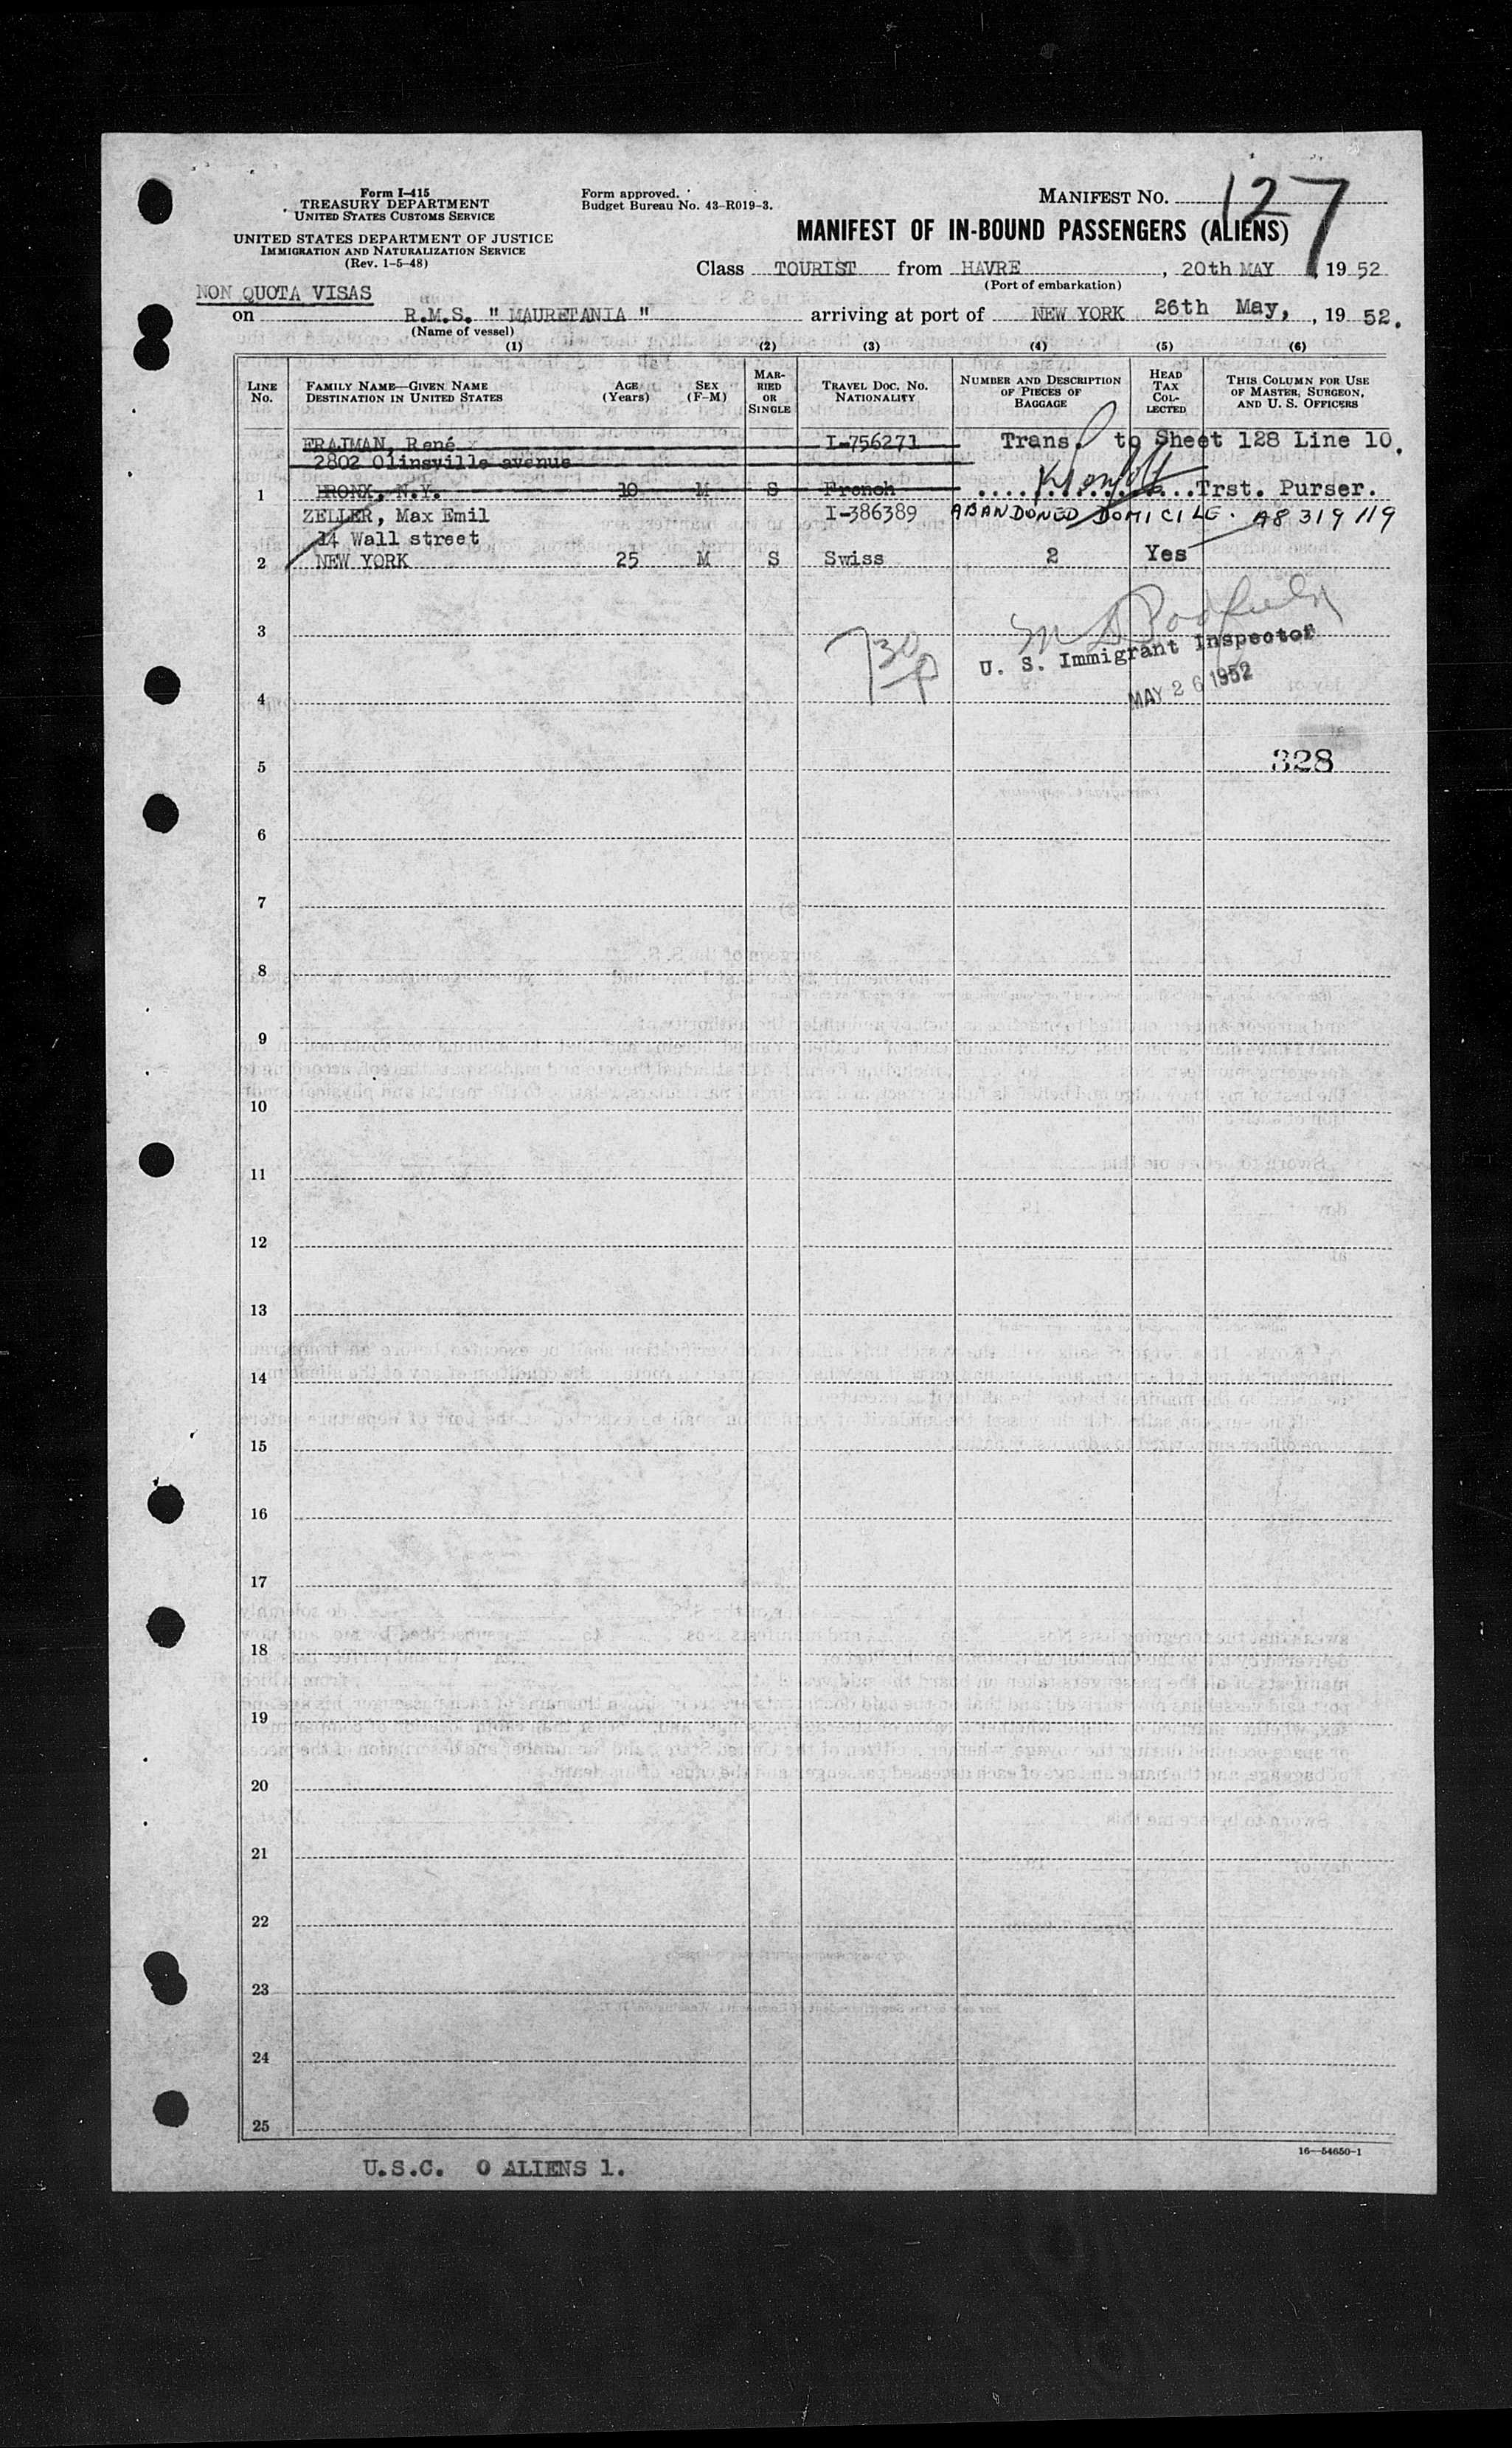 Form I-415
TREASURY DEPARTMENT
UNITED STATES CUSTOMS SERVICE
UNITED STATES DEPARTMENT OF JUSTICE
IMMIGRATION AND NATURALIZATION SERVICE
(Rev. 1-5-48)
Form approved.
Budget Bureau No. 43-R019-3.
MANIFEST NO. 127
MANIFEST OF IN-BOUND PASSENGERS (ALIENS)
Class TOURIST from HAVRE, 20th MAY, 1952
(Port of embarkation)
NON QUOTA VISAS
on R.M.S. " MAURETANIA " arriving at port of NEW YORK 26th May, , 19 52.
(Name of vessel)
(1) (2) (3) (4) (5) (6)
LINE No. FAMILY NAME—GIVEN NAME DESTINATION IN UNITED STATES AGE (Years) SEX (F-M) MARRIED OR SINGLE TRAVEL DOC. NO. NATIONALITY NUMBER AND DESCRIPTION OF PIECES OF BAGGAGE HEAD TAX COLLECTED THIS COLUMN FOR USE OF MASTER, SURGEON, AND U. S. OFFICERS
FRAJMAN, René I-756271 Trans. to Sheet 128 Line 10.
2802 Olinsville avenue
1 BRONX, N.Y. 10 M S French Trst. Purser.
ZELLER, Max Emil I-386389 ABANDONED DOMICILE. A8 319 119
14 Wall street
2 NEW YORK 25 M S Swiss 2 Yes
3
U. S. Immigrant Inspector
4 MAY 26 1952
5 328
6
7
8
9
10
11
12
13
14
15
16
17
18
19
20
21
22
23
24
25
16—54650-1
U.S.C. 0 ALIENS 1.